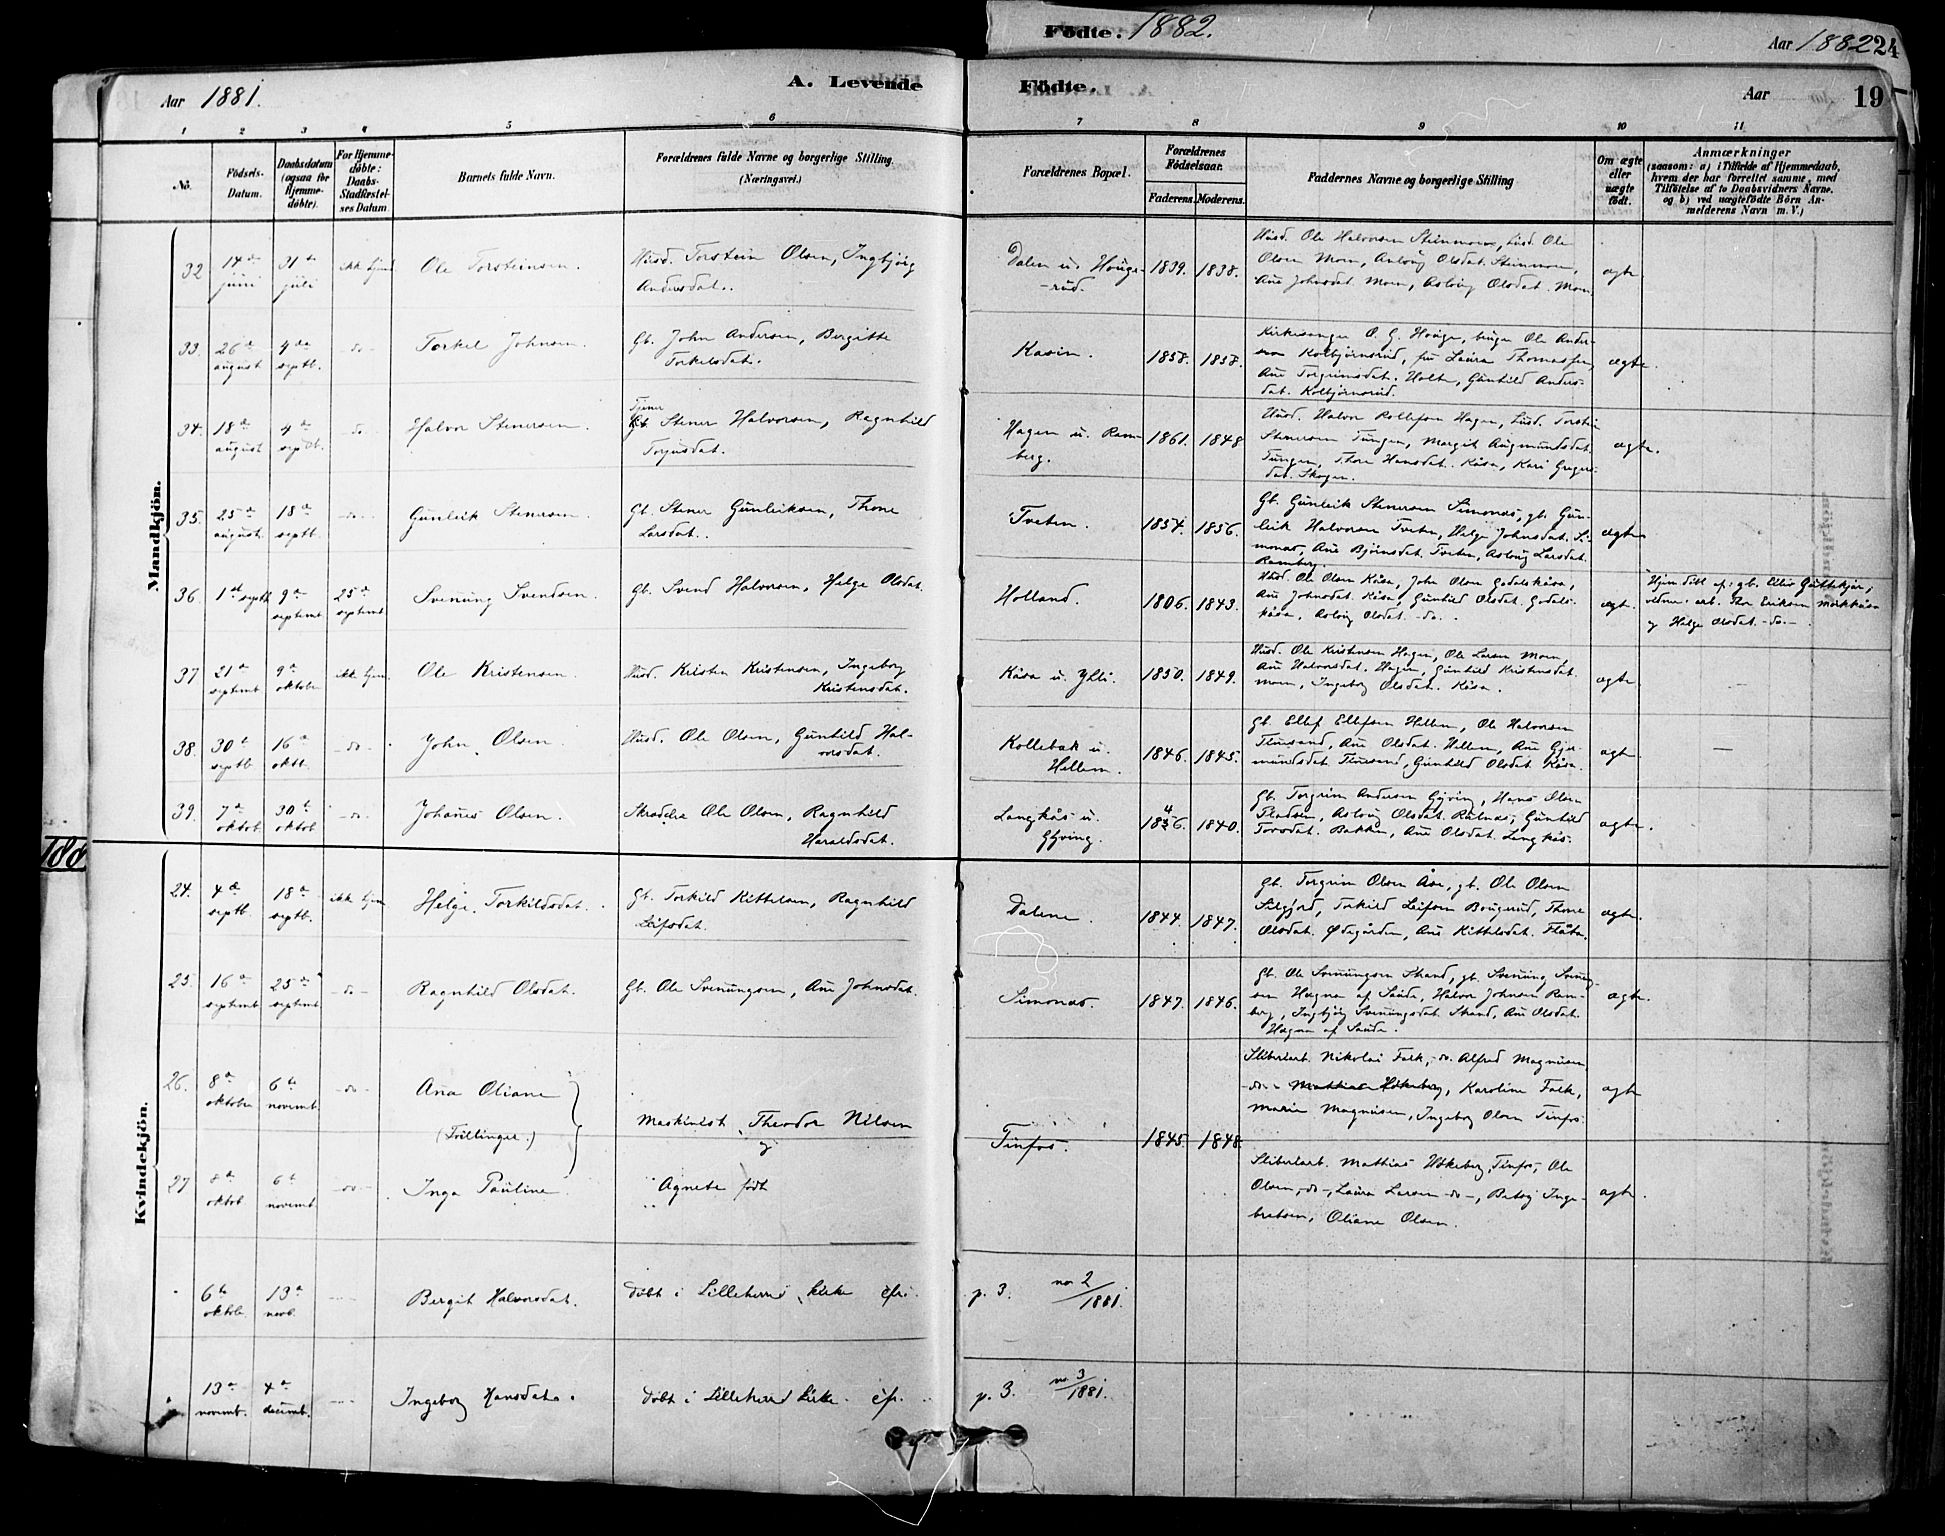 Födte. 1882.
Aar 1882 24
Aar 1881.
A. Levende
Födte.
Aar 19
1 2 3 4 5 6 7 8 9 10 11
No.
Födsels-
Datum.
Daabsdatum
(ogsaa for
Hjemme-
döbte).
For Hjemme-
döbte:
Daabs-
Stadfæstel-
ses Datum
Barnets fulde Navn.
Forældrenes fulde Navne og borgerlige Stilling.
(Næringsvei.)
Forældrenes Bopæl.
Forældrenes
Födselsaar.
Faderens. Moderens.
Faddernes Navne og borgerlige Stilling
Om ægte
eller
uægte
födt.
Anmærkninger
(saasom: a) i Tilfælde af Hjemmedaab,
hvem der har forrettet samme, med
Tilföielse af to Daabsvidners Navne.
og b) ved uægtefödte Börn An-
melderens Navn m. V.)
Mandkjön.
32 14de juni 31te juli ikke hjem Ole Torsteinsen. Husd. Torstein Olsen, Ingbjörg
Andersdat.
Dalen u. Houge-
-rud. 1839. 1838.
Husd. Ole Halvorsen Steinmoen, Husd. Ole
Olsen Moen, Asloug Olsdat. Steinmoen,
Ane Johnsdat. Moen, Asloug Olsdat. Moen. ægte
33. 26de august 4de septb. -do- Torkel Johnsen. Gb. John Andersen, Bergitte
Torkelsdat.
Kasin. 1858. 1858.
Kirkesanger O. G. Houge, bruger Ole Ander-
sen Kolbjörnsrud, fru Laura Thomassen,
Ane Torgrimsdat. Holte, Gunhild Anders-
dat. Kolbjörnsrud. ægte.
34. 18de august 4de septb. -do- Halvor Stenersen. Tjener
Gb. Stener Halvorsen, Ragnhild
Torjusdat.
Hagen u. Ram-
berg. 1861. 1848
Husd. Halvor Rollefsen Hagen, Husd. Torstein
Stenersen Tungen, Margit Augmundsdat.
Tungen, Thore Hansdat. Kåsa, Kari Gregers-
dat. Skogen. ægte.
35. 25de august 18de septb. -do- Gunleik Stenersen Gb. Stener Gunleiksen, Thone
Larsdat.
Tveten. 1854. 1856.
Gb. Gunleik Stenersen Simonæs, gb. Gun-
leik Halvorsen Tveten, Helge Johnsdat. Si-
monæs, Ane Björnsdat. Tveten, Asloug Larsdat.
Ramberg. ægte
36. 1ste septb 9de septemb 25de septemb Svenung Svendsen Gb. Svend Halvorsen, Helge Olsdat.
Holland. 1806. 1843.
Husd. Ole Olsen Kåsa, John Olsen Godalskåsa,
Ane Johnsdat. Kåsa, Gunhild Olsdat. Godals-
kåsa, Asloug Olsdat. -do-. ægte.
Hjemdöbt af: gb. Ellef
vidner: arb. Thor Eriksen
og Helge Olsdat. -do-.
37 21de septemb 9de oktobe ikke hjem. Ole Kristensen. Husd. Kristen Kristensen, Ingeborg
Kristensdat.
Kåsa u. Yhli. 1850. 1849.
Husd. Ole Kristensen Hagen, Ole Larsen Moen,
Ane Halvorsdat. Hagen, Gunhild Kristensdat.
Moen, Ingeborg Olsdat. Kåsa. ægte.
38. 30te septb 16de oktb. -do- John Olsen. Husd. Ole Olsen, Gunhild Hal-
vorsdat.
Kollebæk u.
Hellem. 1846. 1845.
Gb. Ellef Ellefsen Hellem, Ole Halvorsen
Tinesand, Ane Olsdat. Hellem, Ane Gjer-
mundsdat. Tinesand, Gunhild Olsdat. Kåsa. ægte.
39. 7de oktob. 30te oktob -do- Johanes Olsen. Skrædder Ole Olsen, Ragnhild
Haraldsdat.
Langkås u.
Gjving. 1846. 1840.
Gb. Torgrim Andersen Gjving, Hans Olsen
Fladsen, Asloug Olsdat. Rålnæs, Gunhild
Torosdat. Bakken, Ane Olsdat. Langkås. ægte.
Kvindekjön.
24. 4de septb. 18de septb. ikke hjem Helge Torkildsdat. Gb. Torkild Kittelsen, Ragnhild
Leifsdat.
Dalene. 1844. 1847.
Gb. Torgrim Olsen Åse, gb. Ole Olsen
Silgjord, Torkild Leifsen Bougerud, Thone
Olsdat. Ødegården, Ane Kittelsdat. Flåta. ægte.
25. 16de septemb 25de septemb -do- Ragnhild Olsdat. Gb. Ole Svenungsen, Ane Johnsdat.
Simonæs. 1847. 1846.
Gb. Ole Svenungsen Strand, gb. Svenung Svenung-
sen Hægna af Saude, Halvor Johnsen Ram-
berg, Ingbjörg Svenungsdat. Strand, Ane Olsdat.
Hægna af Saude. ægte.
26. 8de oktober 6te novemb. -do- Ana Oliane
(Tvillinger.)
Maskinist Theodor Nilsen
og
Tinfos. 1845. 1848.
Sliberiarb. Nikolai Falk, -do. Alfred Magnusen
-do- Mathias Hökeberg, Karoline Falk,
Marie Magnusen, Ingeborg Olsen Tinfos. ægte
27 8de oktob 6te novemb. -do- Inga Pauline. Agnete födt
Sliberiarb. Mathias Hökeberg, Tinfos, Ole
Olsen, -do-, Laura Larsen -do-, Betsy Inge-
bretsen, Oliane Olsen. ægte.
6te oktob. 13de novb. Bergit Halvorsdat. Döbt i Lilleherred kirke cfr. p. 3. no 2/1881.
13de novemb. 4de decemb. Ingeborg Hansdat. Döbt i Lilleherred kirke. cfr. p. 3. no 3/1881.